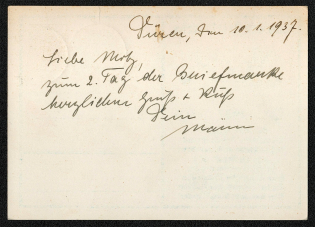 Düren, den 10.1.1937.
Liebe
zum 2. Tag der Briefmarke
herzlichen Gruß + Kuß
Dein